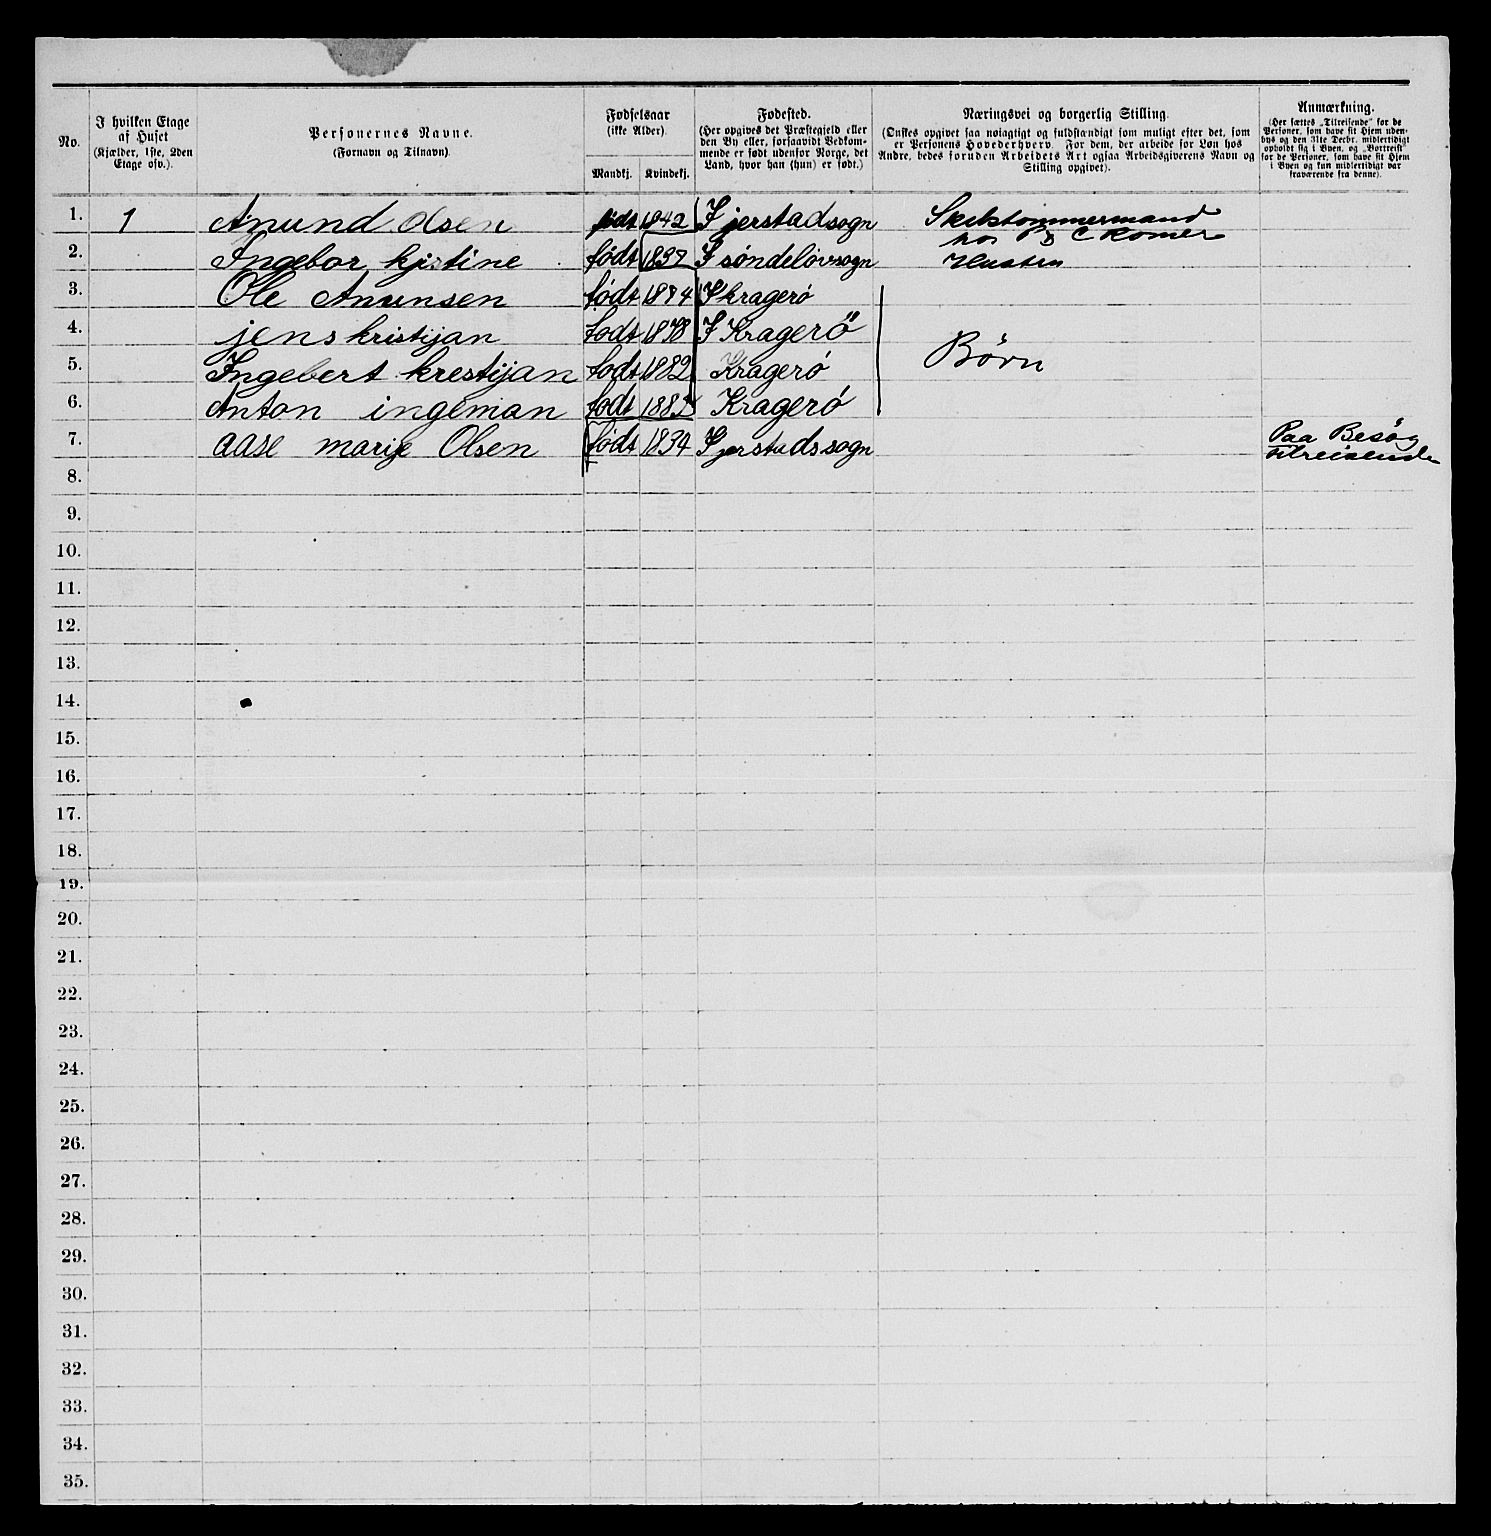 No.
I hvilken Etage af Huset
(Kjælder, 1ste, 2den Etage osv.).
Personernes Navne.
(Fornavn og Tilnavn).
Fødselsaar
(ikke Alder).
Mandkj.
Kvindekj.
Fødested.
(Her opgives det Præstegjeld eller
den By eller, forsaavidt Vedkom-
mende er født udenfor Norge, det
Land, hvor han (hun) er født.)
Næringsvei og borgerlig Stilling.
(Ønskes opgivet saa nøiagtigt og fuldstændigt som muligt efter det, som
er Personens Hovederhverv. For dem, der arbeide for Løn hos
Andre, bedes foruden Arbeidets Art ogsaa Arbeidsgiverens Navn og
Stilling opgivet).
Anmærkning.
(Her sættes „Tilreisende“ for de
Personer, som have sit Hjem uden-
bys og den 31te Decbr. midlertidigt
opholdt sig i Byen, og „Bortreist“
for de Personer, som have sit Hjem
i Byen og kun midlertidigt var
fraværende fra denne).
1. 1 Anund Olsen født 1842 I jerstadsogn Skibstommermand
hos C Romer
2. Ingebor kjstine født 1837 I søndeløvsogn Husten
3. Ole Anunsen født 1874 I kragerö
4. jens kristijan født 1878 I Kragerö
5. Ingebert krestijan født 1882 Kragerö Børn
6. Anton ingeman født 1885 Kragerö
7. aase marije Olsen født 1834 I jerstadssogn Paa Besøg
tilreisende
8.
9.
10.
11.
12.
13.
14.
15.
16.
17.
18.
19.
20.
21.
22.
23.
24.
25.
26.
27.
28.
29.
30.
31.
32.
33.
34.
35.